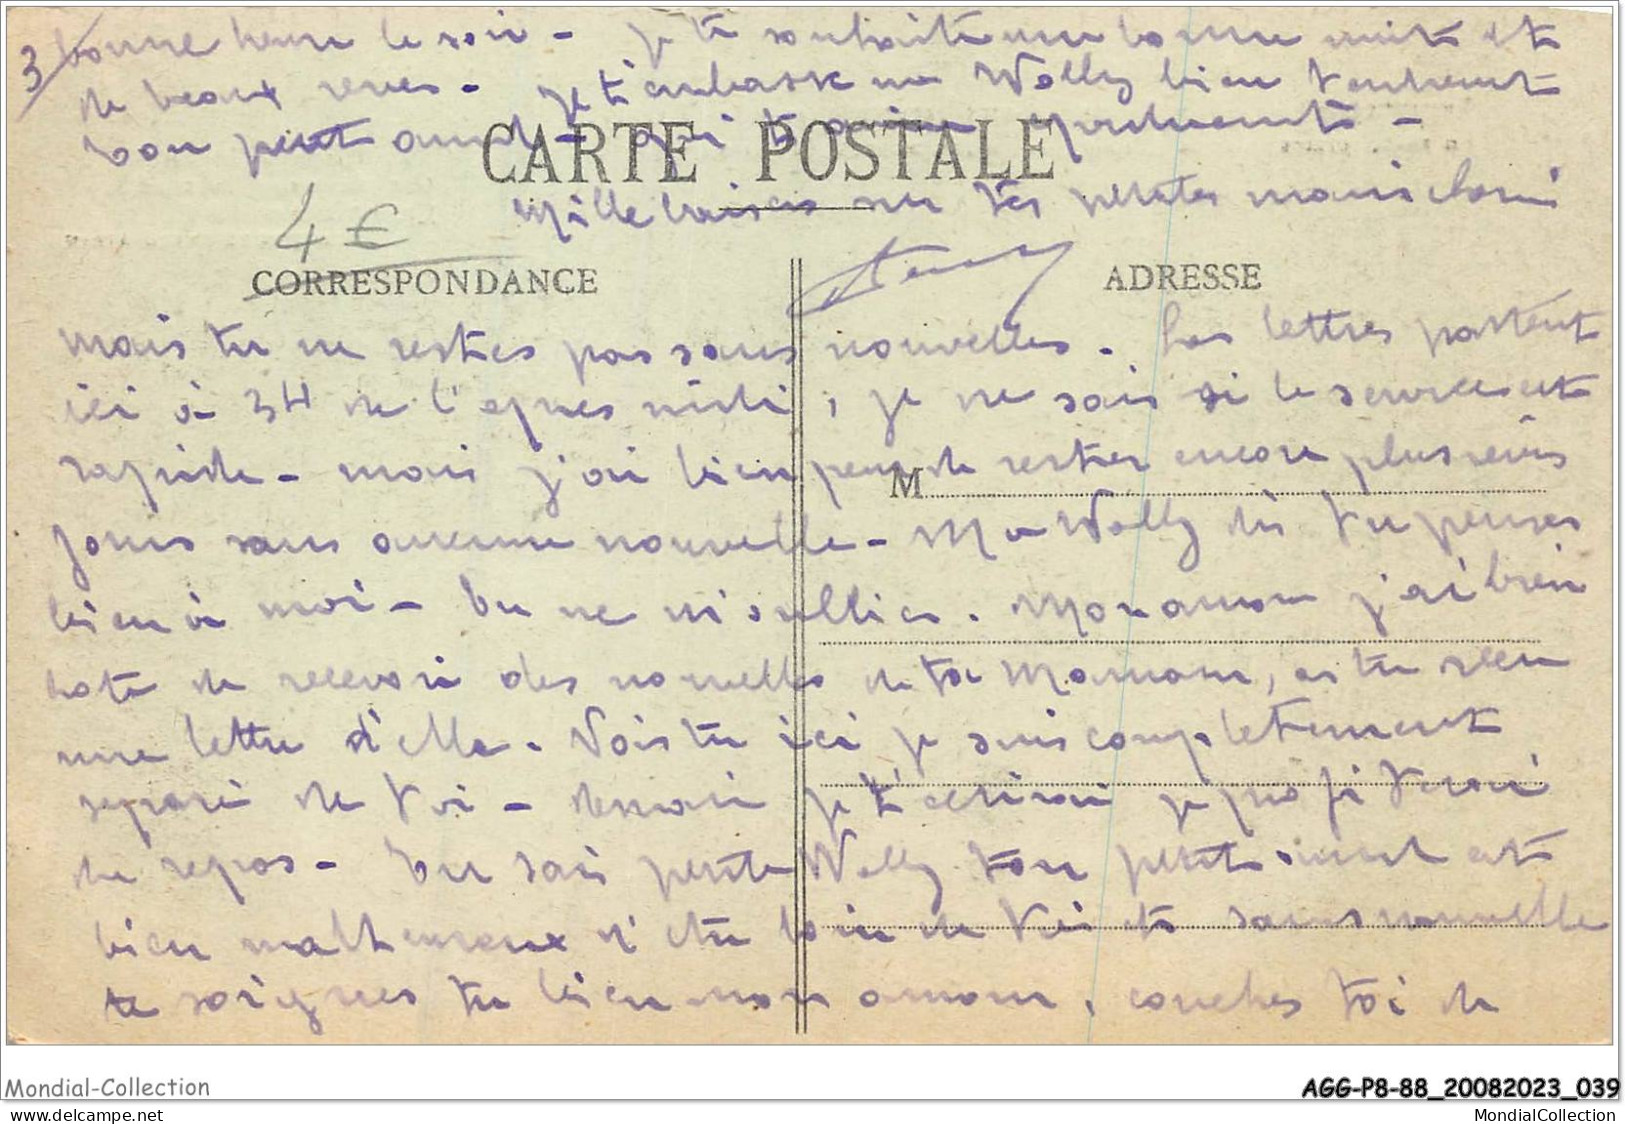 3 bonne heure le soir - je te souhaite une bonne nuit et
de beaux reves - je t'embrasse ma Wolly bien tendrement
ton petit qui t'aime
CARTE POSTALE
Mille baisers sur tes petites mains
4 €
CORRESPONDANCE
ADRESSE
mais tu ne restes pas sans nouvelles. Les lettres partent
ici à 3H de l'apres midi, je ne sais si le service est
rapide - mais j'ai bien peur de rester encore plusieurs
M
jours sans aucune nouvelle - Ma Wolly dis tu penses
bien à moi - tu ne m'oublies. Mon amour j'ai bien
hate de recevoir des nouvelles de toi Maman, as tu recu
une lettre d'elle. Vois tu ici je suis completement
separé de toi - demain je t'ecrirai je profiterai
du repos - Tu sais petite Wolly ton petit est
bien malheureux d'etre loin de toi et sans nouvelle
te soignes tu bien mon amour, couches toi de
Mondial-Collection
AGG-P8-88_20082023_039
delcampe.net
MondialCollection